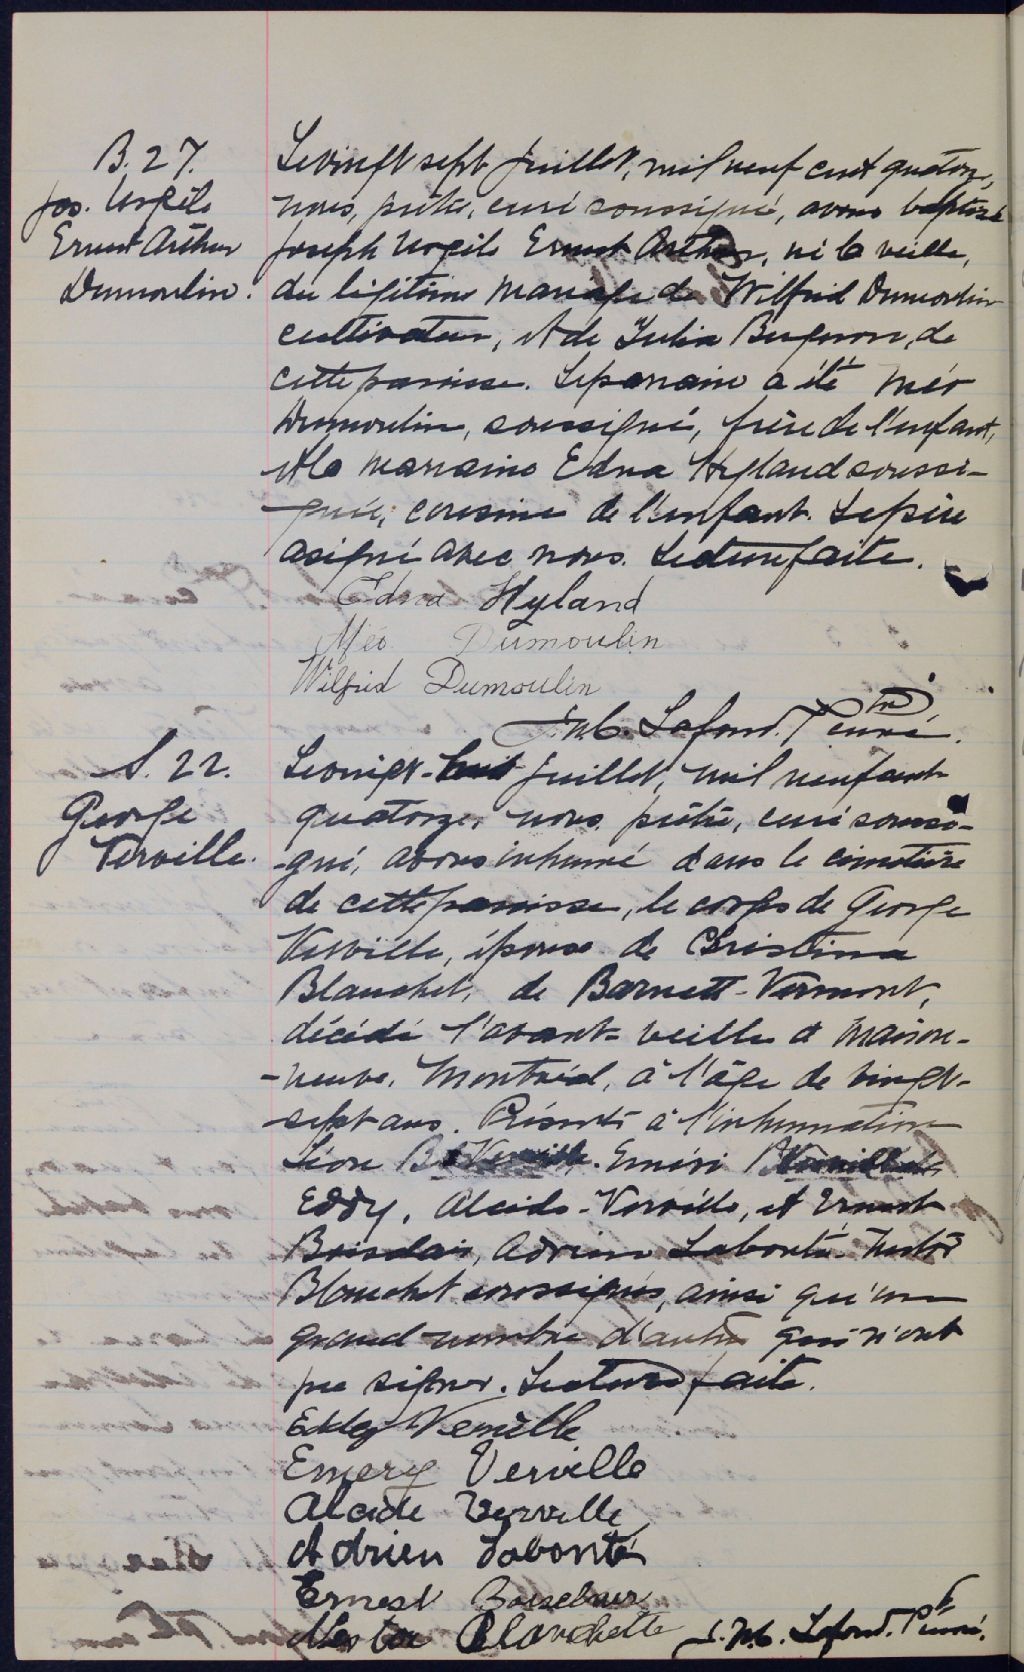 B. 27.
Jos. Virgile
Ernest Arthur
Dumoulin.
Le vingt sept juillet, mil neuf cent quatorze,
nous, prêtre, curé soussigné, avons baptisé
Joseph Virgile Ernest Arthur, né la veille,
du légitime mariage de Wilfrid Dumoulin
cultivateur, et de Julia Bergeron, de
cette paroisse. Le parrain a été Méo
Dumoulin, soussigné, frère de l'enfant,
et la marraine Edna Hyland soussi-
gnée, cousine de l'enfant. Le père
a signé avec nous. Lecture faite.
Edna Hyland
Méo Dumoulin
Wilfrid Dumoulin
Lafond. Ptre curé.
S. 22.
George
Verville.
Le vingt-huit juillet, mil neuf cent
quatorze, nous, prêtre, curé soussi-
-gné, avons inhumé dans le cimetière
de cette paroisse, le corps de George
Verville, époux de Christina
Blanchet, de Barnett-Vermont,
décédé l'avant-veille à Maison-
-neuve, Montréal, à l'âge de vingt-
-sept ans. Présents à l'inhumation
Léon Eméri
Eddy, Alcide-Verville, et Ernest
Boisclair, Adrien Labonté Nestor
Blanchet soussignés, ainsi qu'un
grand nombre d'autres qui n'ont
pu signer. Lecture faite.
Eddy Verville
Emery Verville
Alcide Verville
Adrien Labonté
Ernest Boisclair
Nestor Blanchette Lafond. Ptre curé.